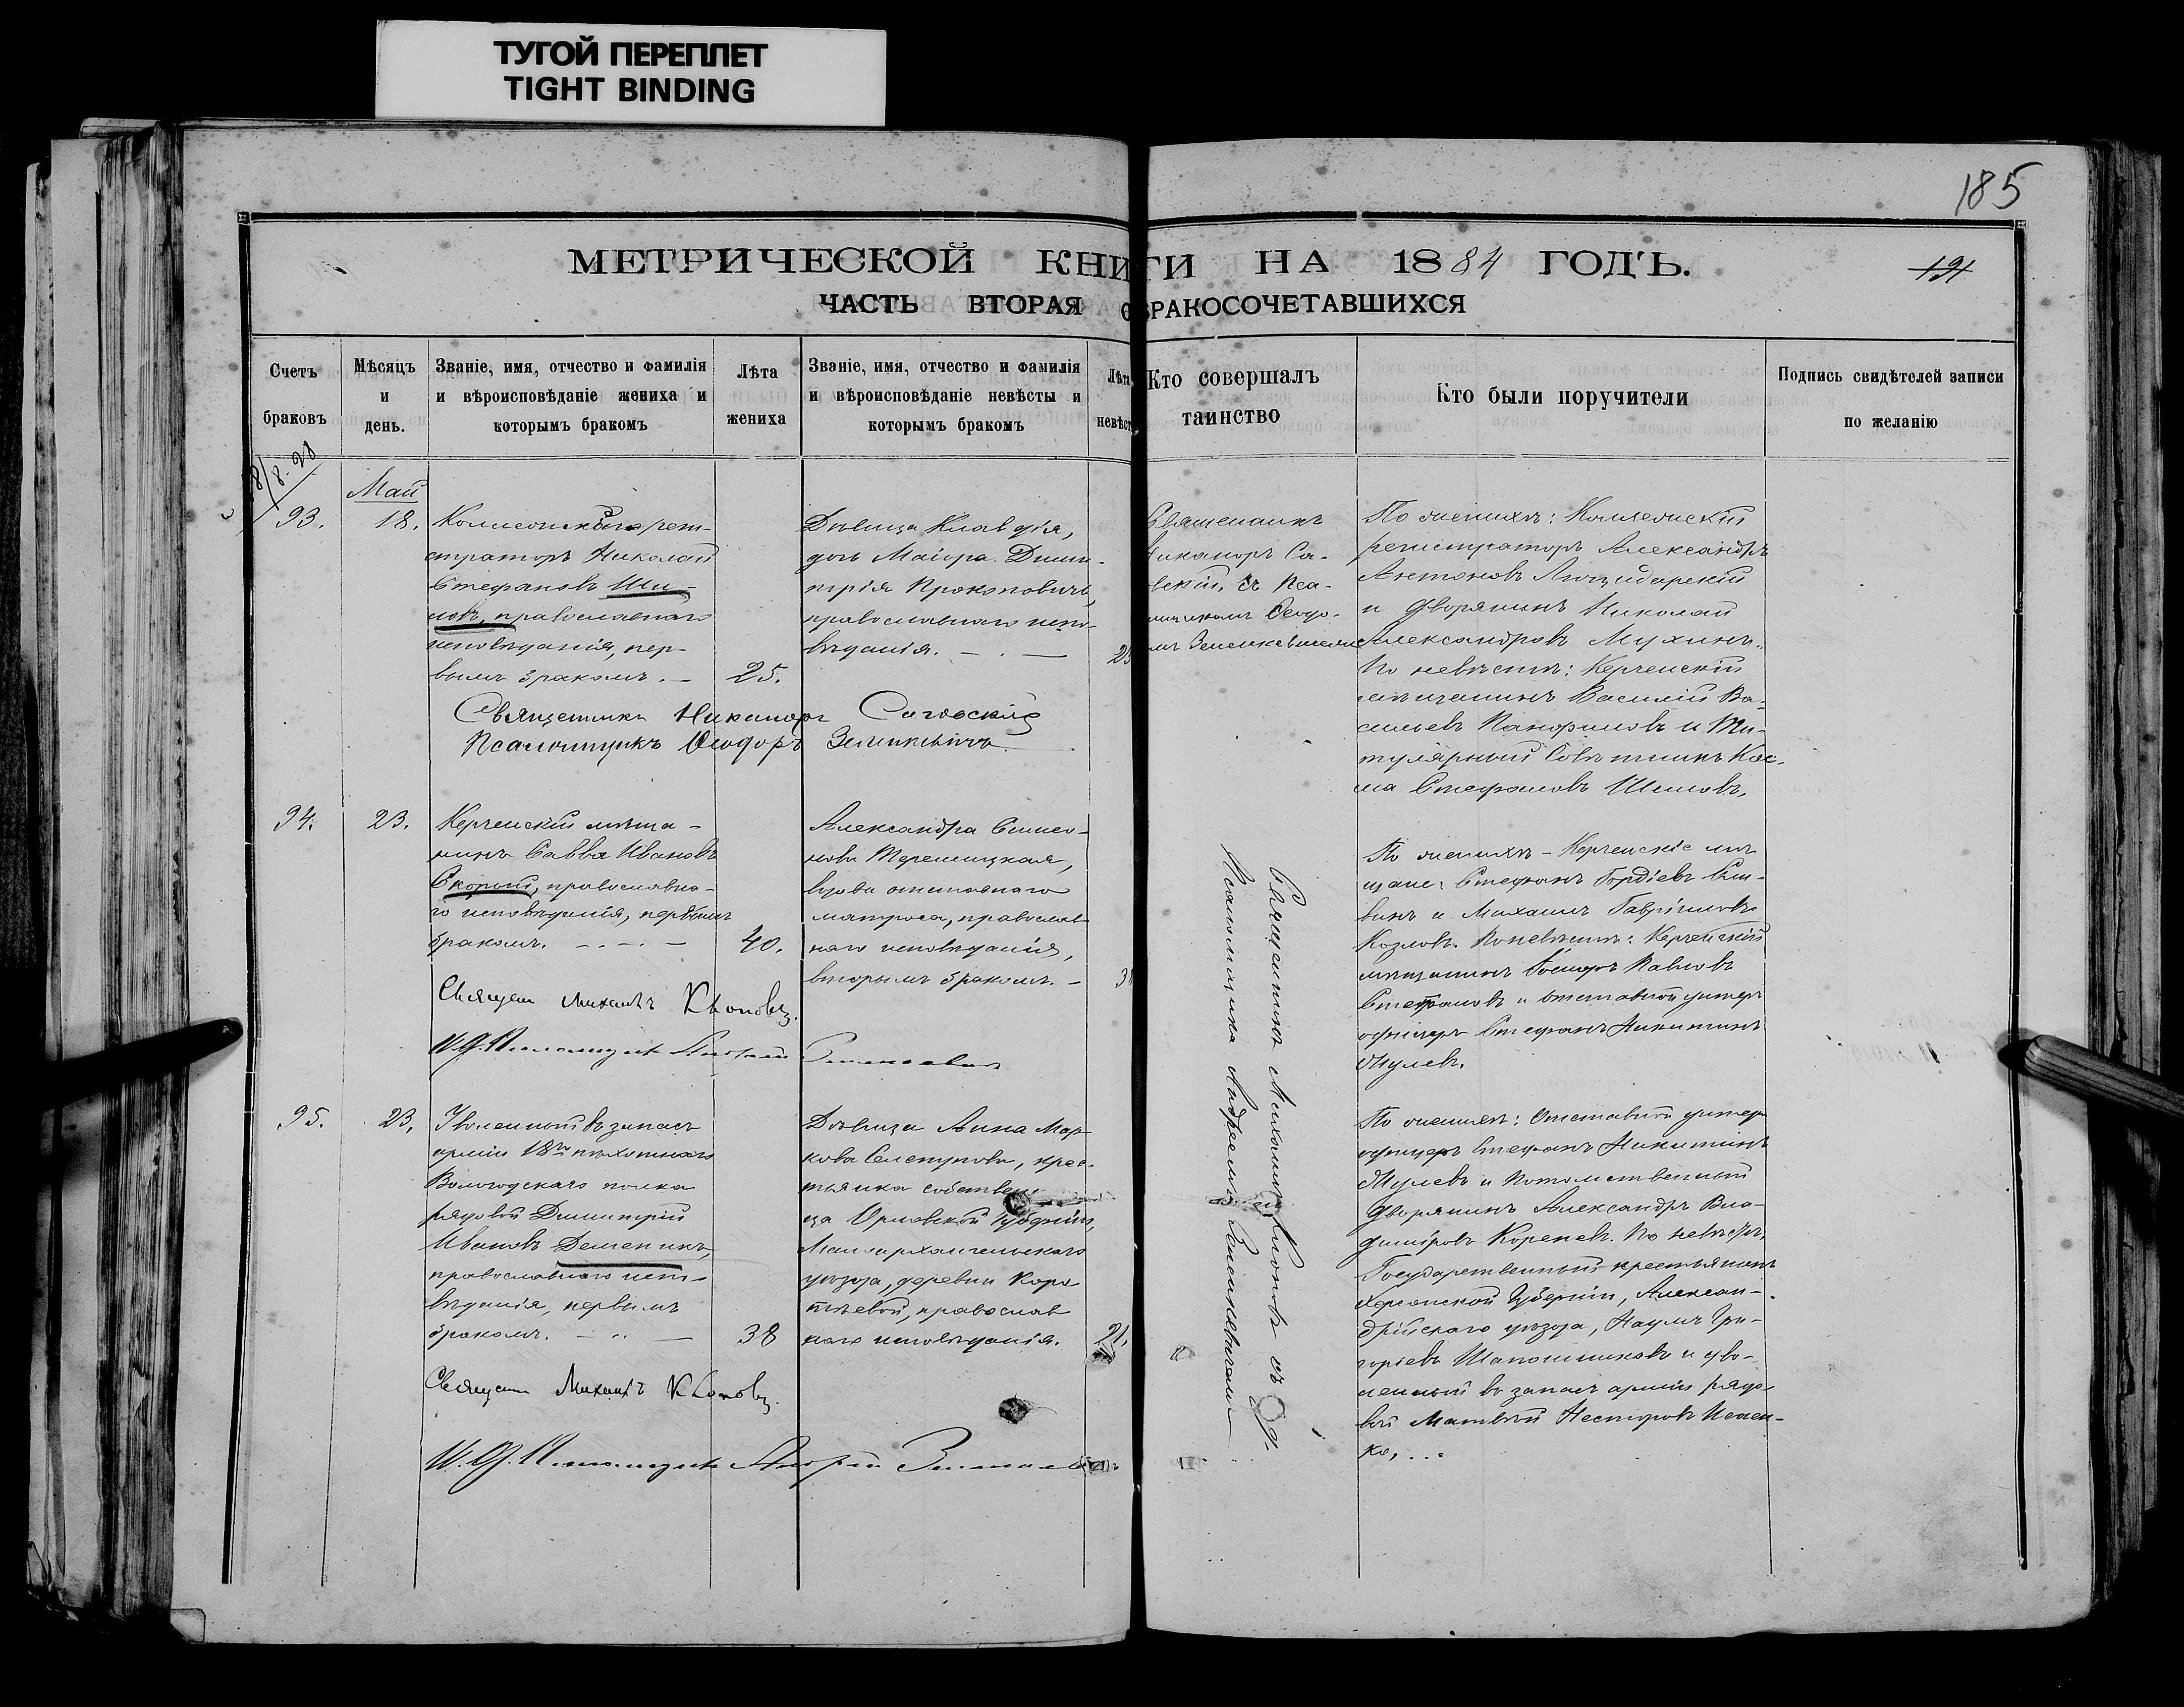 ТУГОЙ ПЕРЕПЛЕТ
TIGHT BINDING
185
МЕТРИЧЕСКОЙ КНИГИ НА 1884 ГОДЪ.
ЧАСТЬ ВТОРАЯ О БРАКОСОЧЕТАВШИХСЯ
Счетъ
браковъ
Мѣсяцъ
и
день.
Званіе, имя, отчество и фамилія
и вѣроисповѣданіе жениха и
которымъ бракомъ
Лѣта
жениха
Званіе, имя, отчество и фамилія
и вѣроисповѣданіе невѣсты и
которымъ бракомъ
Лѣт
невѣст
Кто совершалъ
таинство
Кто были поручители
Подпись свидѣтелей записи
по желанію
Май
93.
18.
Николай
Стефановъ Ши-
ловъ, православнаго
исповѣданія, пер-
вымъ бракомъ. —
25.
Дѣвица Клавдія,
дочь Маіора Дими-
трія Прокоповичъ,
православнаго испо-
вѣданія. —
Священникъ
Никаноръ Са-
скій, съ Пса-
Ѳеодо-
По женихѣ: Коллежскій
регистраторъ Александръ
Антоновъ
и дворянинъ Николай
Александровъ Мухинъ.
По невѣстѣ: Керченскій
мѣщанинъ Василій Ва-
сильевъ Панфиловъ и Ти-
тулярный Совѣтникъ Кос-
ма Стефановъ Шиловъ.
Священникъ Никаноръ
Псаломщикъ Ѳеодоръ Зеленкевичъ
94.
23.
Керченскій мѣща-
нинъ Савва Ивановъ
Скорый, православна-
го исповѣданія, первымъ
бракомъ. —
40.
Александра Симео-
нова Терешицкая,
вдова отставнаго
матроса, православ-
наго исповѣданія,
вторымъ бракомъ. —
По женихѣ – Керченскіе мѣ-
щане: Стефанъ Гордіевъ
и Михаилъ Гавріиловъ
Козловъ. По невѣстѣ: Керченскій
мѣщанинъ Павловъ
Стефановъ и отставной унтеръ
офицеръ Стефанъ Никитинъ
Жулевъ.
Священ Михаилъ
И. д. Псаломщика
Священникъ Михаилъ съ И. д.
Псаломщика Андреемъ Зеленкевичемъ
95.
23.
Уволенный въ запасъ
арміи 18го пѣхотнаго
Вологодскаго полка
рядовой Димитрій
Ивановъ Деменикъ,
православнаго испо-
вѣданія, первымъ
бракомъ. —
38
Дѣвица Анна Мар-
кова Селетунова, крес-
тьянка собствен
ца Орловской Губерніи,
Малоархангельскаго
уѣзда, деревни
православ
наго исповѣданія.
21.
По женихѣ: Отставной унтеръ
офицеръ Стефанъ Никитинъ
Жулевъ и потомственный
дворянинъ Александръ Вла-
диміровъ Кореневъ. По невѣстѣ:
Государственный крестьянинъ
Херсонской Губерніи, Алексан-
дрійскаго уѣзда, Наумъ Гри-
горіевъ Шапошниковъ и уво-
ленный въ запасъ арміи рядо-
вой Матвѣй Несторовъ
ко. ...
Священ Михаилъ
И. д. Псаломщика Андрей